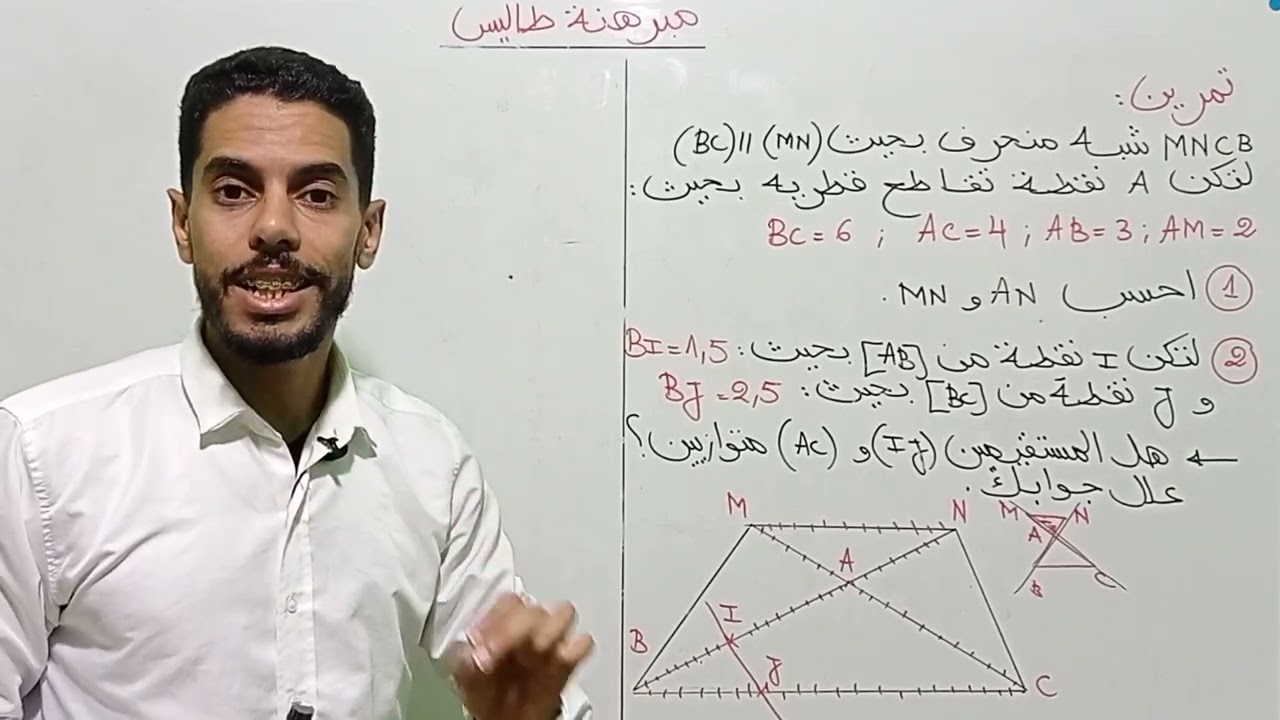 مبرهنة طاليس
تمرين:
MNCB شبه منحرف بحيث (MN) // (BC)
لتكن A نقطة تقاطع قطريه بحيث:
BC = 6 ; AC = 4 ; AB = 3 ; AM = 2
① احسب AN و MN.
② لتكن I نقطة من [AB] بحيث: BI = 1,5
و J نقطة من [BC] بحيث: BJ = 2,5
← هل المستقيمين (IJ) و (AC) متوازيين؟
علل جوابك.
M N
A
I
B
J
C
M N
A
B C